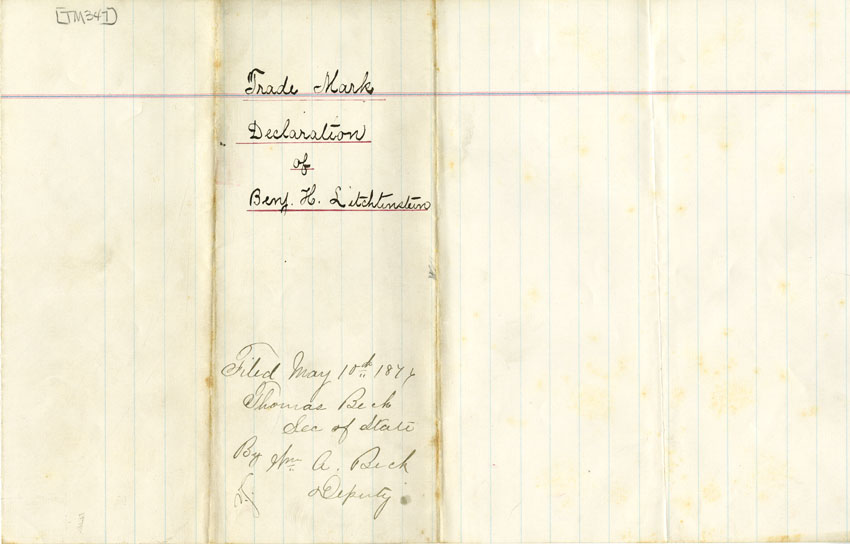 [TM347]
Trade Mark
Declaration
of
Benj. H. Litchtinstein
Filed May 10th
Thomas Beck
Sec of State
By Wm A. Beck
Deputy